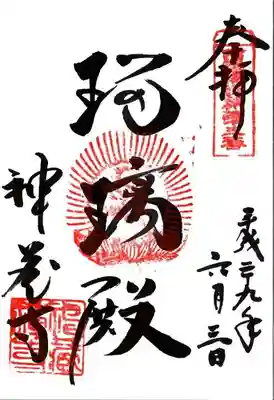 奉拝
瑠璃殿
神蔵寺
平成二九年
六月三日